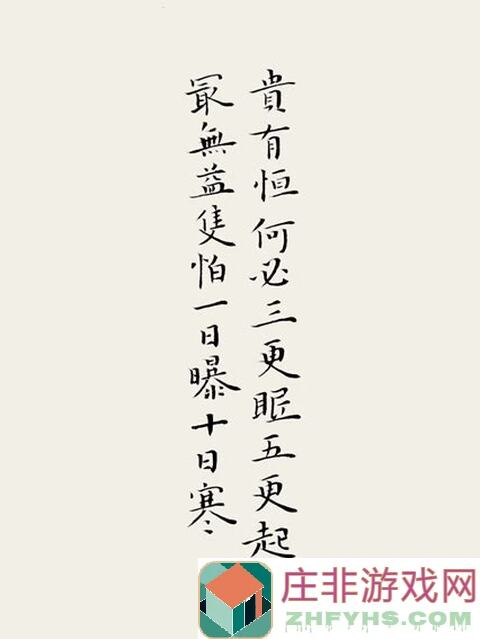 貴有恒何必三更眠五更起
冣無益隻怕一日曝十日寒
庄非游戏网
ZHFYHS.COM